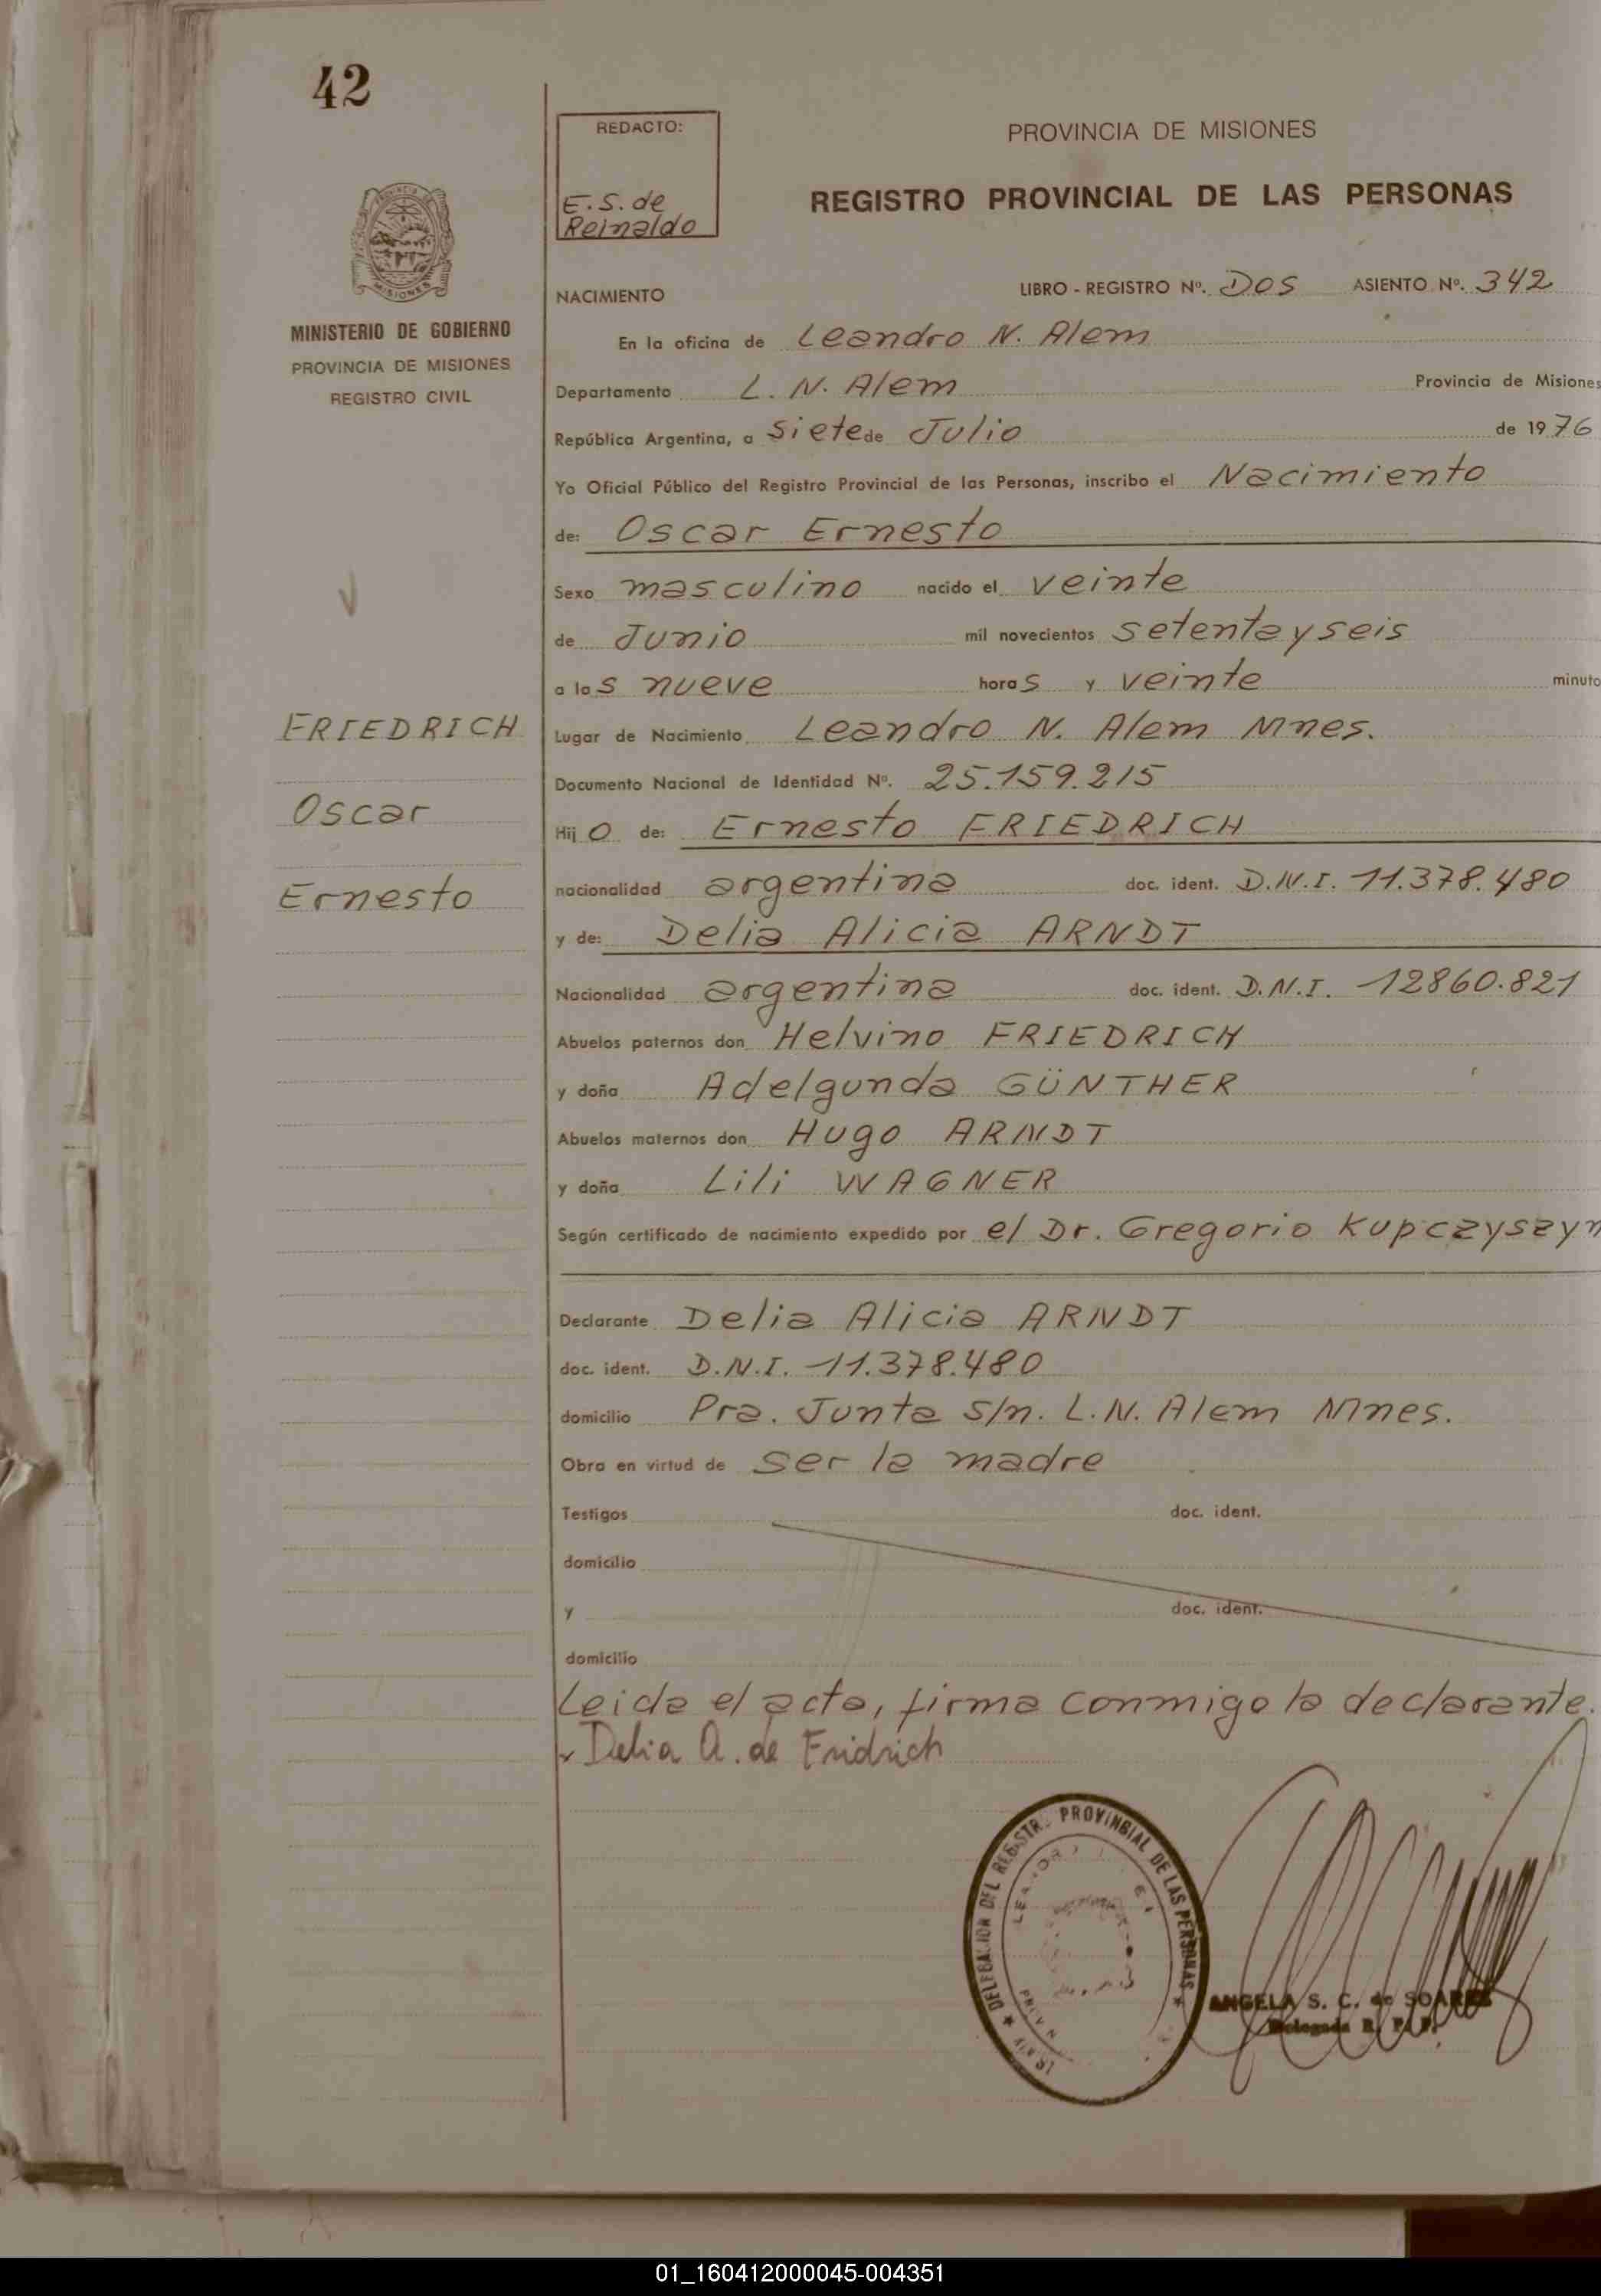 42
REDACTO:
E. S. de
Reinaldo
PROVINCIA DE MISIONES
REGISTRO PROVINCIAL DE LAS PERSONAS
MINISTERIO DE GOBIERNO
PROVINCIA DE MISIONES
REGISTRO CIVIL
NACIMIENTO LIBRO - REGISTRO Nº. DOS ASIENTO Nº. 342
En la oficina de Leandro N. Alem
Departamento L. N. Alem Provincia de Misiones
República Argentina, a siete de Julio de 1976
Yo Oficial Público del Registro Provincial de las Personas, inscribo el Nacimiento
de: Oscar Ernesto
Sexo masculino nacido el veinte
de Junio mil novecientos setenta y seis
a las nueve horas y veinte minuto
FRIEDRICH
Oscar
Ernesto
Lugar de Nacimiento Leandro N. Alem Mnes.
Documento Nacional de Identidad Nº. 25.159.215
Hijo de: Ernesto FRIEDRICH
nacionalidad argentina doc. ident. D.N.I. 11.378.480
y de: Delia Alicia ARNDT
Nacionalidad argentina doc. ident. D.N.I. 12860.821
Abuelos paternos don Helvino FRIEDRICH
y doña Adelgunda GÜNTHER
Abuelos maternos don Hugo ARNDT
y doña Lili WAGNER
Según certificado de nacimiento expedido por el Dr. Gregorio Kupczyszyn
Declarante Delia Alicia ARNDT
doc. ident. D.N.I. 11.378.480
domicilio Pra. Junta s/n. L.N. Alem Mnes.
Obra en virtud de ser la madre
Testigos doc. ident.
domicilio
y doc. ident.
domicilio
Leida el acta, firma conmigo la declarante.
Delia A. de Fridrich
DELEGACION DEL REGISTRO PROVINCIAL DE LAS PERSONAS
ANGELA S. C. de SOAREZ
Delegada R. P. P.
01_160412000045-004351